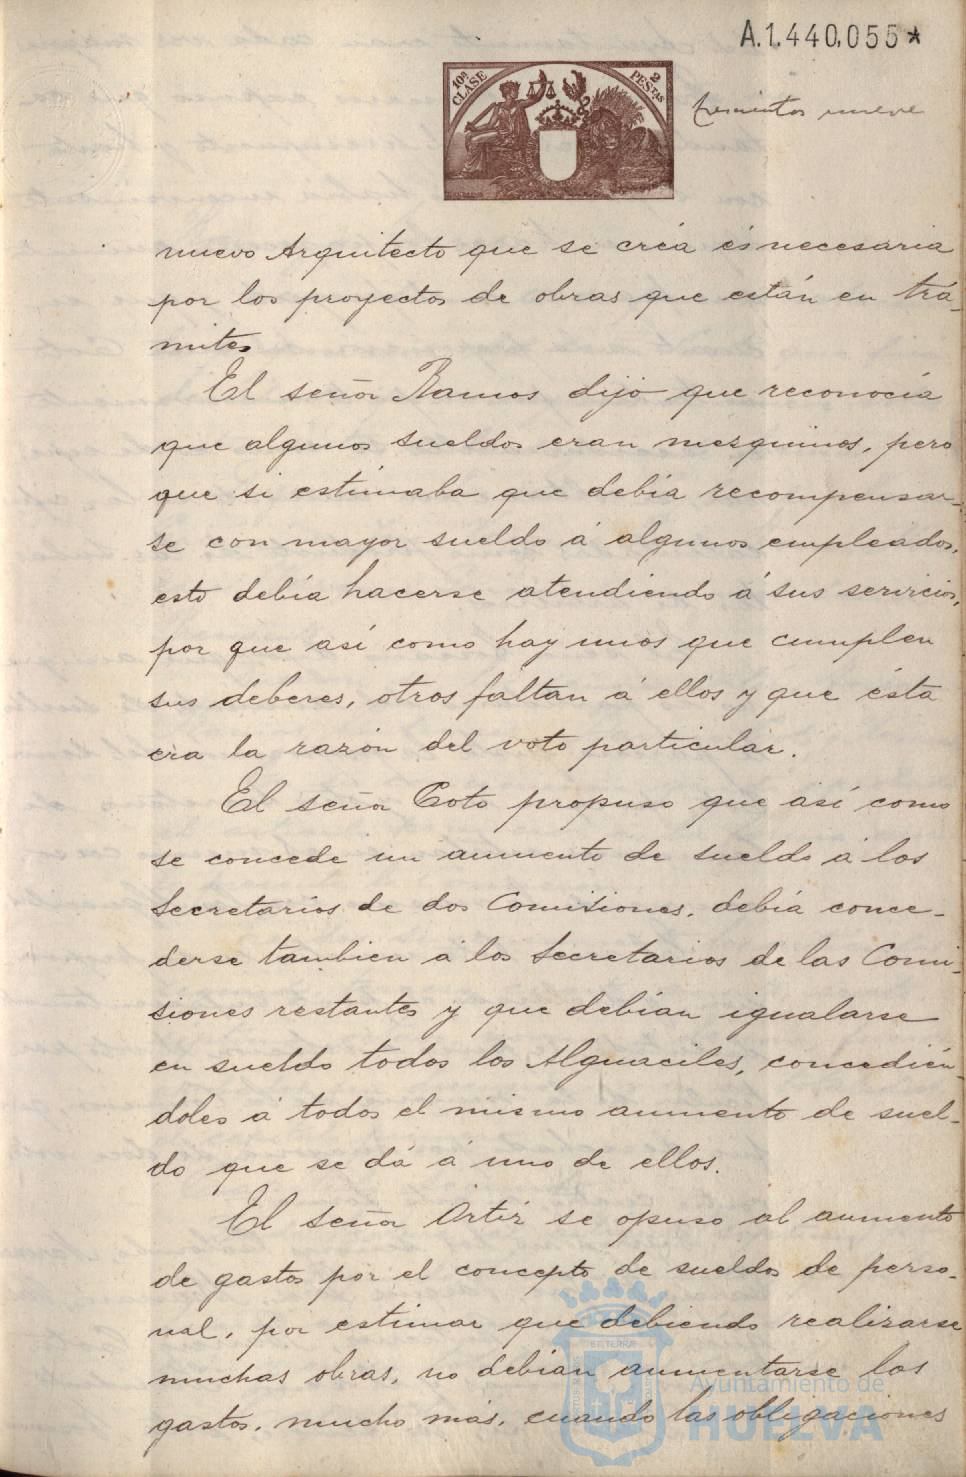 A.1.440,055*
10ª CLASE
2 PESETAS
trescientos nueve
nuevo Arquitecto que se créa és necesaria
por los proyectos de obras que están en trá-
mites
El señor Ramos dijo que reconocía
que algunos sueldos eran mezquinos, pero
que si estimaba que debía recompensar-
se con mayor sueldo á algunos empleados,
esto debía hacerse atendiendo á sus servicios,
por que así como hay unos que cumplen
sus deberes, otros faltan á ellos y que ésta
era la razón del voto particular.
El señor Coto propuso que así como
se concede un aumento de sueldo á los
Secretarios de dos Comisiones, debía conce-
derse tambien á los Secretarios de las Comi-
siones restantes y que debían igualarse
en sueldo todos los Alguaciles, concedién-
doles á todos el mismo aumento de suel-
do que se dá á uno de ellos.
El señor Ortiz se opuso al aumento
de gastos por el concepto de sueldos de perso-
nal, por estimar que debiendo realizarse
muchas obras, no debían aumentarse los
gastos, mucho más, cuando las obligaciones
Ayuntamiento de
HUELVA